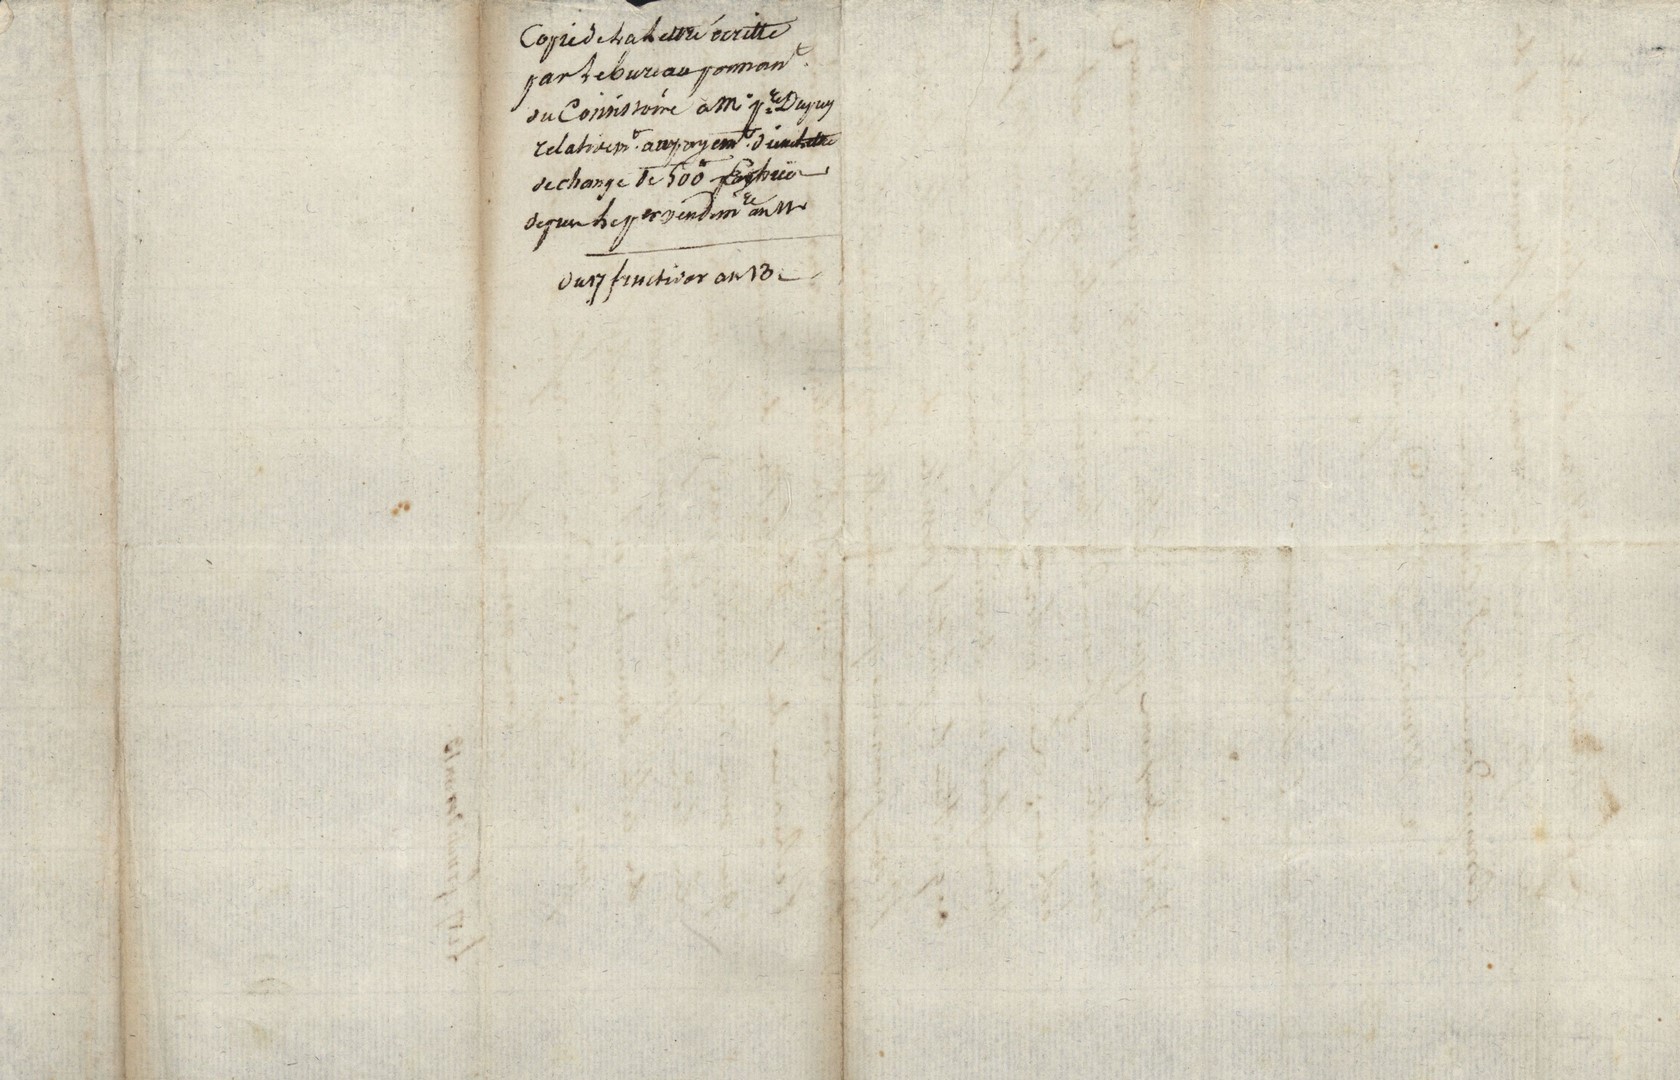 Copie de La Lettre écritte
par Le bureau perman.t
du Consistoire à M.r p.re Dupuy
relativem.t au payem.t d'une Lettre
de change de 500tt
depuis Le p.er vendem.re an 11
du 17 fructidor an 13